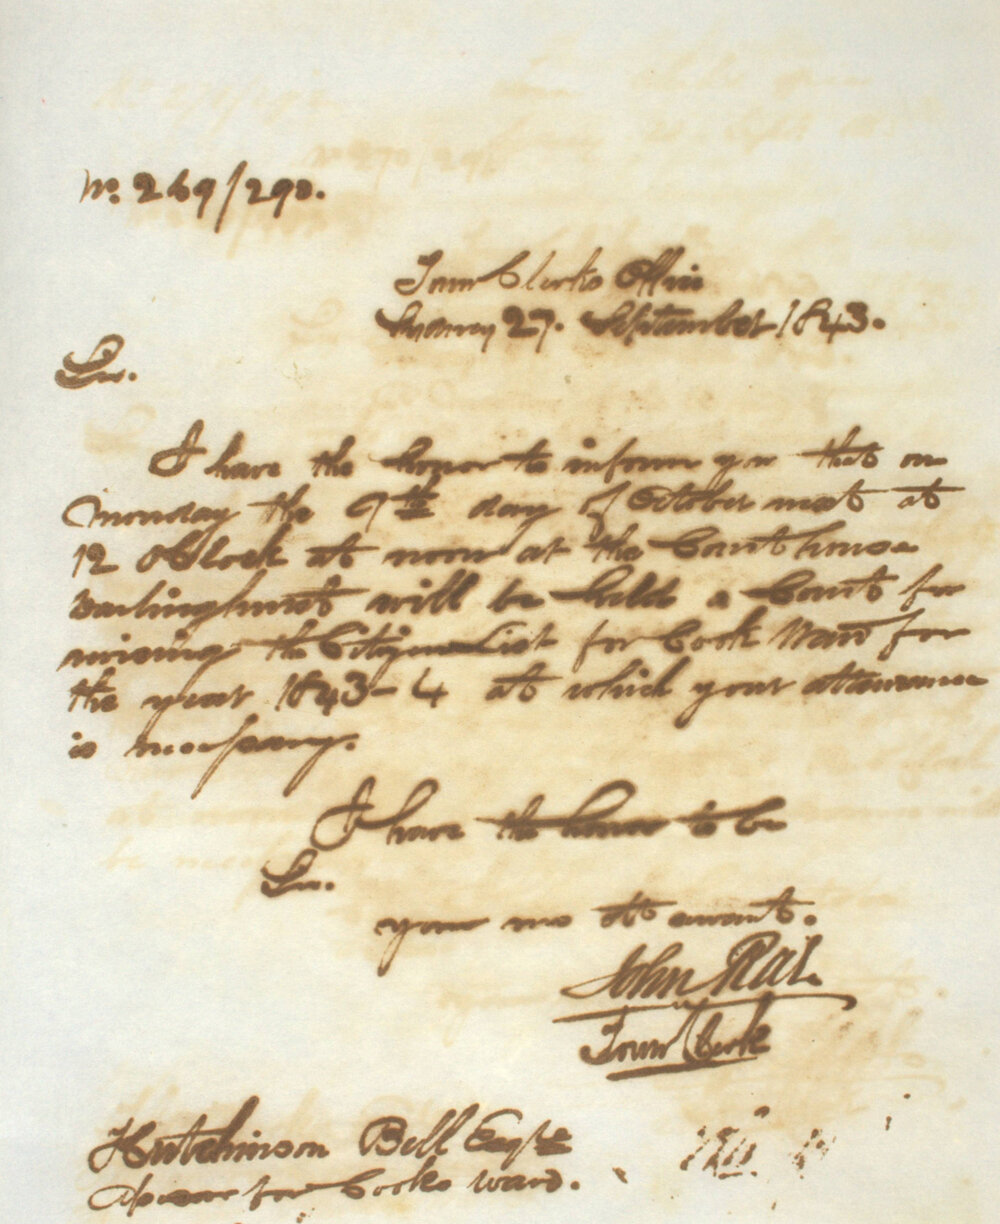 No. 269/290.
Town Clerks Office
Sydney 27. September 1843.
Sir.
I have the honor to inform you that on
Monday the 9th day of October next at
12 oClock at noon at the Court house
Darlinghurst will be held a Court for
revising the Citizen List for Cook Ward for
the year 1843-4 at which your attendance
is necessary.
I have the honor to be
Sir.
your mo ob servant.
John Rae.
Town Clerk
Hutchinson Bell Esqre
Assessor for Cooks ward.